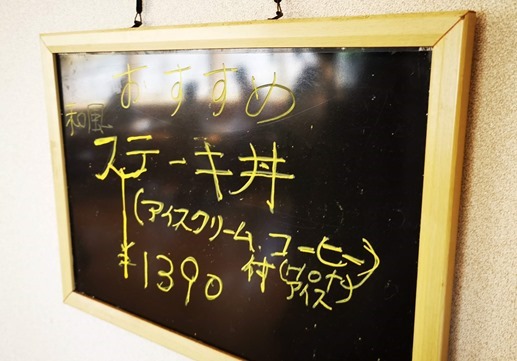 おすすめ
和風
ステーキ丼
(アイスクリーム、コーヒー)
付
¥1390
アイス